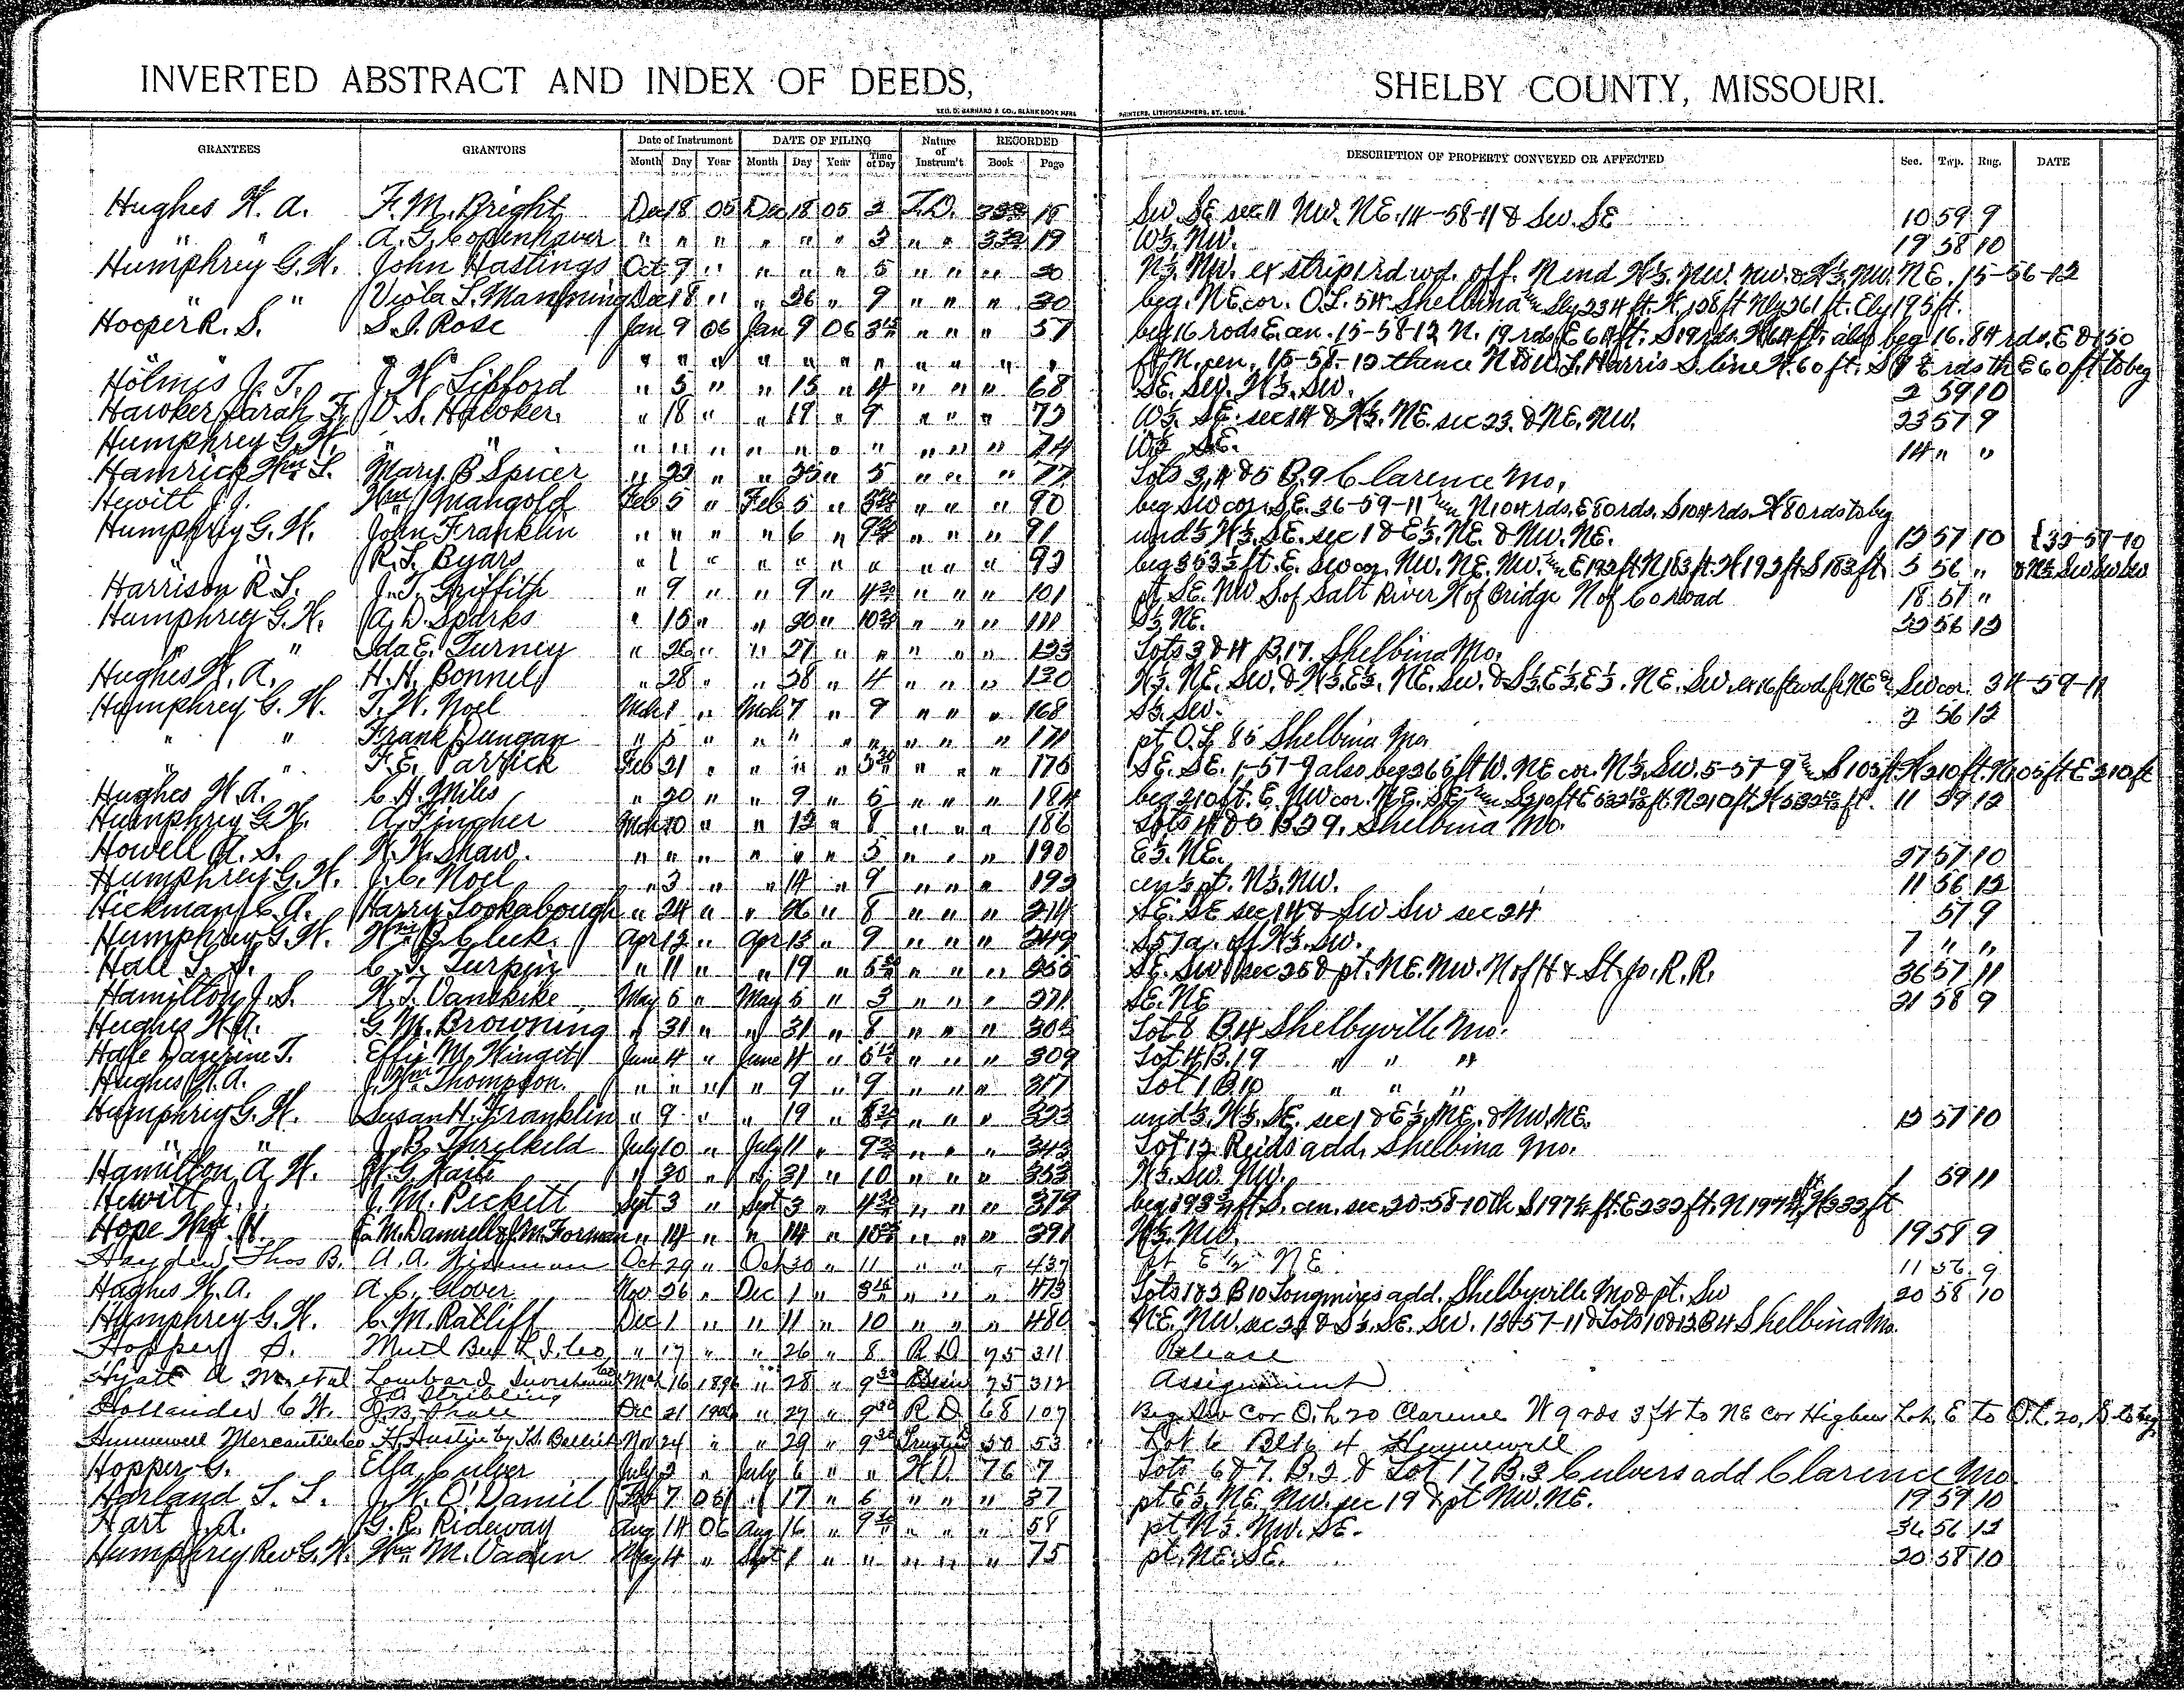 INVERTED ABSTRACT AND INDEX OF DEEDS, SHELBY COUNTY, MISSOURI.
GEO. D. BARNARD & CO., BLANK BOOK MFRS PRINTERS, LITHOGRAPHERS, ST. LOUIS.
GRANTEES GRANTORS Date of Instrument DATE OF FILING Nature of Instrum't RECORDED DESCRIPTION OF PROPERTY CONVEYED OR AFFECTED Sec. Twp. Rng. DATE
Month Day Year Month Day Year Time of Day Book Page
Hughes W. A. F. M. Bright Dec 18 05 Dec 18 05 2 T.D. 15 SW. SE sec 11 NW. NE. 14-58-11 & SW. SE 10 59 9
" " A. G. Copenhaver " " " " " " 3 " " 19 W½. NW. 19 58 10
Humphrey G. W. John Hastings Oct 9 " " " " 5 " " " 20 N½. NW. ex strip 1 rd wd. off. N end W½. NW. NW. & W½. NW. NE. 15-56-12
" " Viola L. Manning Dec 18 " " 26 " 9 " " " 30 beg. NE cor. O.L. 54 Shelbina Sly 234 ft. W. 128 ft Nly 261 ft. Ely 195 ft.
Hooper R. S. S. J. Rose Jan 9 06 Jan 9 06 " " " 57 beg 16 rods E cen. 15-58-12 N. 19 rds E 64 ft. S 19 rds. W 64 ft. also beg 16.84 rds. E & 150
" " " " " " " " " " " " ft N. cen. 15-58-12 thence N to W.L. Harris S. line W. 60 ft. S rds th E 60 ft to beg
Holmes J. T. J. W. Lifford " 5 " " 13 " 4 " " " 68 SE. SW. W½. SW. 2 59 10
Hawker Sarah F. V. S. Hawker. " 18 " " 19 " 9 " " " 73 W½. SE. sec 14 & W½. NE. sec 23. & NE. NW. 23 57 9
Humphrey G. W. " " " " " " " " " " " " 74 W½ SE. 14 " "
Hamrick Wm L. Mary B Spicer " 23 " " 25 " 5 " " " 77 Lots 3, 4 & 5 B. 9 Clarence Mo.
Hewitt J. J. Wm Mangold Feb 5 " Feb 5 " " " " 90 beg SW cor. SE. 36-59-11 N 104 rds. E 80 rds. S 104 rds. W 80 rds to beg
Humphrey G. W. John Franklin " " " " 6 " " " " 91 und ½ W½. SE. sec 1 & E½. NE. & NW. NE. 12 57 10 {33-57-10
" " R. L. Byars " 1 " " " " " " " " 93 beg 353½ ft. E. SW cor. NW. NE. NW. E 192 ft N 183 ft. W 192 ft S 183 ft. 5 56 " & N½ SW SW SW
Harrison R. L. J. T. Griffith " 9 " " 9 " " " " 101 pt SE. NW S. of Salt River W of Bridge N of Co road 18 57 "
Humphrey G. W. A. D. Sparks " 15 " " 20 " " " " 111 S½ NE. 22 56 12
" " Ida E. Turney " 26 " " 27 " " " " " 123 Lots 3 & 4 B. 17. Shelbina Mo.
Hughes W. A. H. H. Bonnel " 28 " " 28 " 4 " " " 130 W½. NE. SW. & W½. E½. NE. SW. & S½. E½. E½. NE. SW. SW cor. 34-59-11
Humphrey G. W. T. W. Noel Mch 1 " Mch 7 " 9 " " " 168 S½. SW. 2 56 12
" " Frank Dungan " 5 " " " " " " " " 171 pt O.L 85 Shelbina Mo.
" " F. E. Parrick Feb 21 " " " " " " " 175 SE. SE. 1-57-9 also beg 265 ft W. NE cor. N½. SW. 5-57-9 S 105 ft. W 210 ft. N 105 ft E 210 ft
Hughes W. A. C. H. Miles " 20 " " 9 " 5 " " " 184 beg 210 ft. E. NW cor. NE. SE S 210 ft E ft. N 210 ft. W ft. 11 59 12
Humphrey G. W. A. Fingher Mch 10 " " 12 " 8 " " " 186 Lots 4 & 5 B 29. Shelbina Mo.
Howell A. S. W. W. Shaw. " " " " " " 5 " " " 190 E½. NE. 27 57 10
Humphrey G. W. J. C. Noel " 3 " " 14 " 9 " " " 193 cen ½ pt. N½. NW. 11 56 12
Hickman C. A. Harry Lookabough " 24 " " 26 " 8 " " " 214 SE. SE sec 14 & SW SW sec 24 57 9
Humphrey G. W. Wm B. Cleek. Apr 12 " Apr 13 " 9 " " " 249 S 57 a. off W½. SW. 7 " "
Hale L. S. C. L. Turpin " 11 " " 19 " " " " 255 SE. SW sec 25 & pt. NE. NW. N of H & St. Jo. R.R. 36 57 11
Hamilton J. S. W. T. Vanskike May 5 " May 5 " 3 " " " 271 SE. NE 21 58 9
Hughes W. A. G. M. Browning " 31 " " 31 " 8 " " " 305 Lot 8 B. 4 Shelbyville Mo.
Hale T. Effie M. Winget June 4 " June 4 " " " " 309 Lot 4 B. 19 " " "
Hughes W. A. J. Wm Thompson. " " " " 9 " 9 " " " 317 Lot 1 B. 10 " " "
Humphrey G. W. Susan H. Franklin " 9 " " 19 " " " " 323 und ½. W½. SE. sec 1 & E½. NE. & NW. NE. 12 57 10
" " J. B. Threlkeld July 10 " July 11 " " " " 343 Lot 12 Reids add. Shelbina Mo.
Hamilton A. W. W. G. " 30 " " 31 " 10 " " " 353 W½. SW. NW. 1 59 11
Hewitt J. J. J. M. Pickett Sept 3 " Sept 3 " " " " 379 beg ft. S. cen. sec. 20-58-10 th S ft. E 232 ft. N W 232 ft
Hope Wm. H. E. M. Daniell & J. M. Forman " 14 " " 14 " " " " 391 W½. NW. 19 58 9
Hayden Thos B. A. A. Oct 29 " Oct 30 " 11 " " " 437 pt E ½ NE 11 56 9
Hughes W. A. A. C. Glover Nov 26 " Dec 1 " " " " 473 Lots 1 & 2 B 10 Longmires add. Shelbyville Mo & pt. SW 20 58 10
Humphrey G. W. C. M. Ratliff Dec 1 " " 11 " 10 " " " 480 NE. NW. sec 24 & S½. SE. SW. 13-57-11 & Lots 10 & 12 B 4 Shelbina Mo.
Hopper S. " 17 " " 26 " 8 R D. 95 311 Release
Hyatt A M. et al Lombard " 28 " 75 312 Assignment
Hollander C. W. J. A. Stribling Dec 21 " 27 " R D. 68 107 Beg SW cor O. L. 20 Clarence W 9 rds 3 ft to NE cor Higbee Lot, E to O. L. 20, S to beg
Hunnewell Mercantile Co Nov 24 " " 29 " 50 53 Lot 6 Blk 4 Hunnewell
Hopper G. Ella Culver July 2 " July 6 " " W. D. 76 7 Lots 6 & 7. B. 2 & Lot 17 B. 3 Culvers add Clarence Mo.
Harland L. L. J. W. O'Daniel 7 05 " 17 " 6 " " " 37 pt E½. NE. NW. sec 19 & pt NW. NE. 19 59 10
Hart J. A. G. R. Rideway Aug 14 06 Aug 16 " " " " 58 pt N½. NW. SE. 36 56 12
Humphrey Rev G. W. Wm M. Vaden May 4 " Sept 1 " " " " " 75 pt. NE. SE. 20 58 10